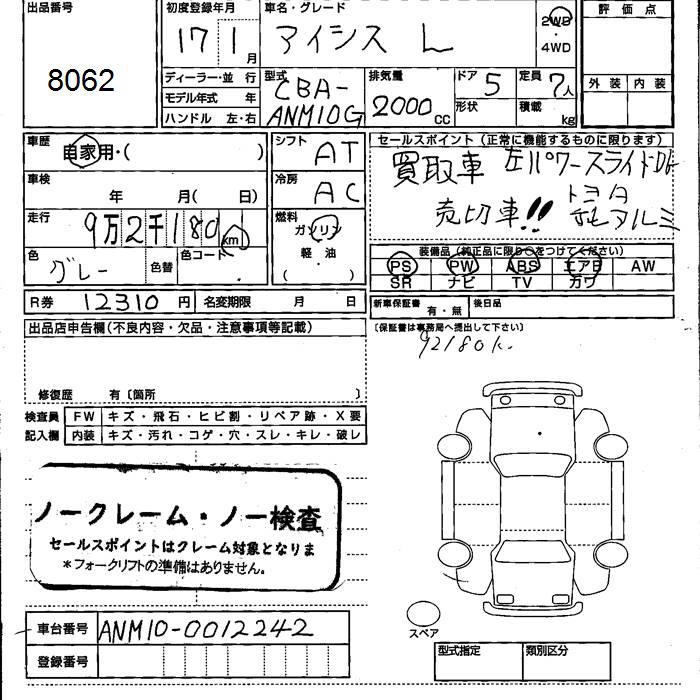 出品番号
8062
初度登録年月
17 1月
車名・グレード
アイシス L
2WD
・
4WD
評価点
外装 内装
ディーラー・並行
モデル年式 年
ハンドル 左・右
型式
CBA-
ANM10G
排気量
2000cc
ドア 5
形状
定員 7人
積載 kg
車歴
自家用・( )
車検
年 月( 日)
走行
9万2千180km
色
グレー
色替
色コード
シフト
AT
冷房
AC
燃料
ガソリン
軽・油
( )
セールスポイント(正常に機能するものに限ります)
買取車 左パワースライドDr
売切車!! トヨタ
純アルミ
装備品(純正品に限り○をつけてください)
PS PW ABS エアB AW
SR ナビ TV カワ
R券 12310円 名変期限 月 日
新車保証書 有・無 後日品
〔保証書は事務局へ提出して下さい〕
92180k.
出品店申告欄(不良内容・欠品・注意事項等記載)
修復歴 有〔箇所 〕
検査員 FW キズ・飛石・ヒビ割・リペア跡・X要
記入欄 内装 キズ・汚れ・コゲ・穴・スレ・キレ・破レ
ノークレーム・ノー検査
セールスポイントはクレーム対象となりま
*フォークリフトの準備はありません。
車台番号 ANM10-0012242
登録番号
スペア
型式指定 類別区分